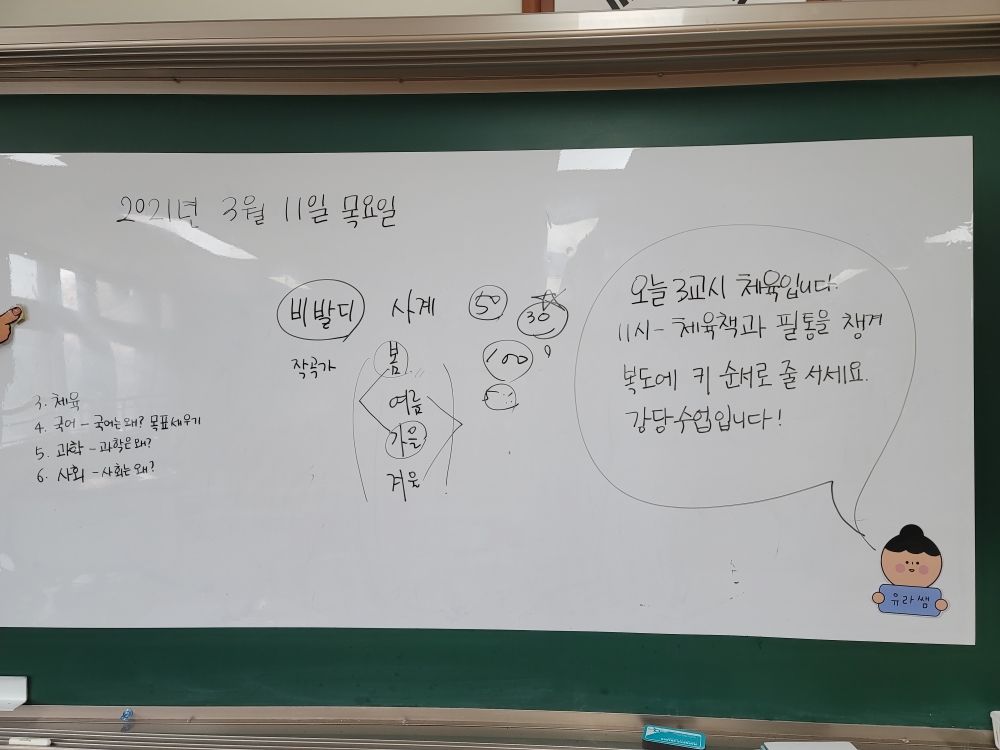 2021년 3월 11일 목요일
3. 체육
4. 국어 - 국어는 왜? 목표 세우기
5. 과학 - 과학은 왜?
6. 사회 - 사회는 왜?
비발디 사계 50 30
작곡가 봄 100
여름
가을
겨울
오늘 3교시 체육입니다.
11시- 체육책과 필통을 챙겨
복도에 키 순서로 줄 서세요.
강당수업입니다!
유라쌤